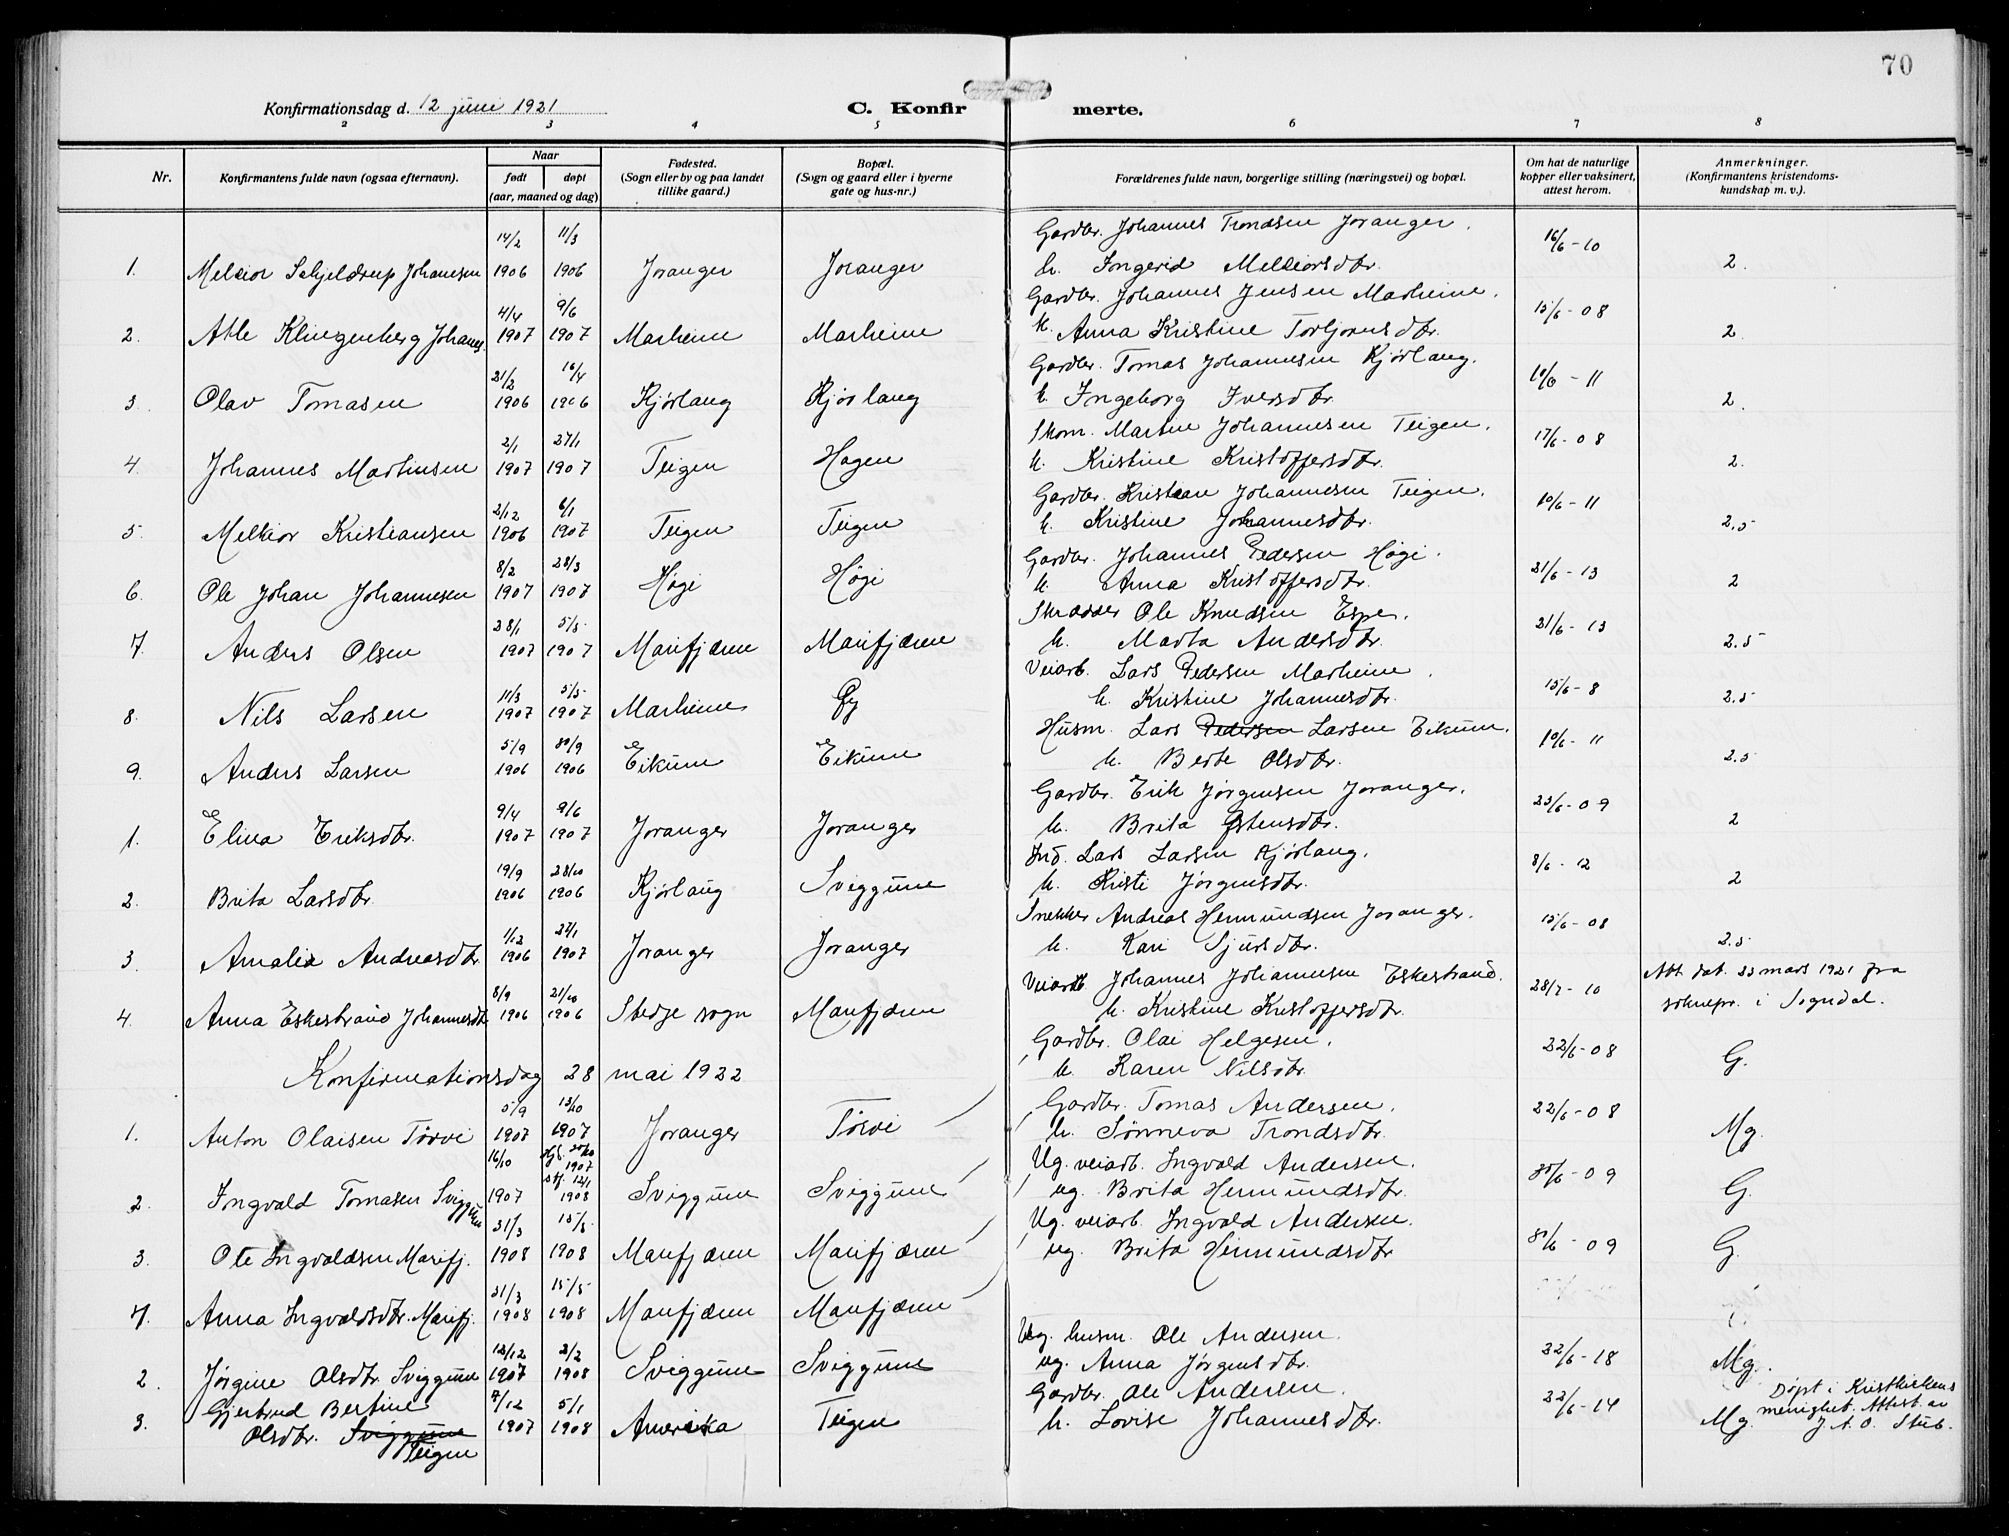 70
Konfirmationsdag d. 12 juni 1921
C. Konfirmerte.
2 3 4 5 6 7 8
Nr.
Konfirmantens fulde navn (ogsaa efternavn).
Naar
født
døpt
(aar, maaned og dag)
Fødested.
(Sogn eller by og paa landet
tillike gaard.)
Bopæl.
(Sogn og gaard eller i byerne
gate og hus-nr.)
Forældrenes fulde navn, borgerlige stilling (næringsvei) og bopæl.
Om hat de naturlige
kopper eller vaksinert,
attest herom.
Anmerkninger.
(Konfirmantens kristendoms-
kundskap m. v.).
14/2 11/3 Gardbr. Johannes Trondsen Joranger. 16/6-10
1. Melkior Schjeldrup Johanesen 1906 1906 Joranger Joranger h. Ingerid Melkiorsdtr. 2.
4/4 9/6 Gardbr. Johannes Jensen Marheine. 15/6-08
2. Atle Klingenberg Johanes. 1907 1907 Marheine Marheine h. Anna Kristine Torbjørnsdtr. 2
21/2 16/4 Gardbr. Tomas Johannesen Kjørlaug. 10/6-11
3. Olav Tomasen 1906 1906 Kjørlaug Kjørlaug h. Ingeborg Iversdtr. 2.
2/1 27/1 Skom. Martin Johannesen Teigen. 17/6-08
4. Johannes Martinsen 1907 1907 Teigen Hagen h. Kristine Kristoffersdtr. 2.
2/12 6/1 Gardbr. Kristian Johannesen Teigen. 10/6-11
5. Melkior Kristiansen 1906 1907 Teigen Teigen h. Kristine Johannesdtr. 2,5
8/2 28/3 Gardbr. Johannes Pedersen Høgi. 21/6-13
6. Ole Johan Johannesen 1907 1907 Høgi Høgi h. Anna Kristoffersdtr. 2
28/1 5/5 Skrædder Ole Knudsen Espe. 21/6-13
7. Anders Olsen 1907 1907 Marifjæren Marifjæren h. Marta Andersdtr. 2.5
11/3 5/5 Veiarb. Lars Pedersen Marheine. 15/6-8
8. Nils Larsen 1907 1907 Marheine h. Kristine Johannesdtr. 2.5
5/9 30/9 Husm. Lars Pedersen Larsen Eikum. 10/6-11
9. Anders Larsen 1906 1906 Eikum Eikum h. Berte Olsdtr. 2.5
9/4 9/6 Gardbr. Erik Jørgensen Joranger. 23/6-09
1. Elina Eriksdtr. 1907 1907 Joranger Joranger h. Brita Østensdtr. 2
19/9 28/10 Ind. Lars Larsen Kjørlaug. 8/6-12
2. Brita Larsdtr 1906 1906 Kjørlaug Sviggum h. Kristi Jørgensdtr. 2
1/12 27/1 Snekker Andreas Hermundsen Joranger. 15/6-08
3. Amalia Andreasdtr. 1906 1907 Joranger Joranger h. Kari Sjursdtr. 2.5
8/9 21/10 Veiarb. Johannes Johannesen Eskestrand. 28/7-10 Att. dat. 23 mars 1921 fra
4. Anna Eskestrand Johannesdtr 1906 1906 Stedje sogn Marifjæren h. Kristine Kristoffersdtr. soknepr. i Sogndal.
Gardbr. Olai Helgesen. 22/6-08
Konfirmationsdag 28 mai 1922 h. Karen Nilsdtr. G.
5/9 13/10 Gardbr. Tomas Andersen. 22/6-08
1. Anton Olaisen Tørvi 1907 1907 Joranger Tørvi h. Sønneva Trondsdtr. Mg.
16/10 hjd. 20/10 1907 Ug. veiarb. Ingvald Andersen. 30/6-09
2. Ingvald Tomasen Sviggum 1907 stf. 12/1 1908 Sviggum Sviggum ug. Brita Hermundsdtr. G.
31/3 15/5 Ug. veiarb. Ingvald Andersen. 30/6-09
3. Ole Ingvaldsen Marifj. 1908 1908 Marifjæren Marifjæren ug. Brita Hermundsdtr G.
31/3 15/5
4. Anna Ingvaldsdtr. Marifj. 1908 1908 Marifjæren Marifjæren
12/12 2/2 Ug. husm. Ole Andersen. 22/6-18
2. Jørgine Olsdtr. Sviggum 1907 1908 Sviggum Sviggum ug. Anna Jørgensdtr. Mg.
Gjertrud Bertine 7/12 5/1 Gardbr. Ole Andersen. 22/6-14 Døpt i Kristkirkens
3. Olsdtr. Sviggum 1907 1908 Amerika Teigen h. Lovise Johannesdtr. Mg. menighet. Attest av
Teigen J. A. O. Stub.